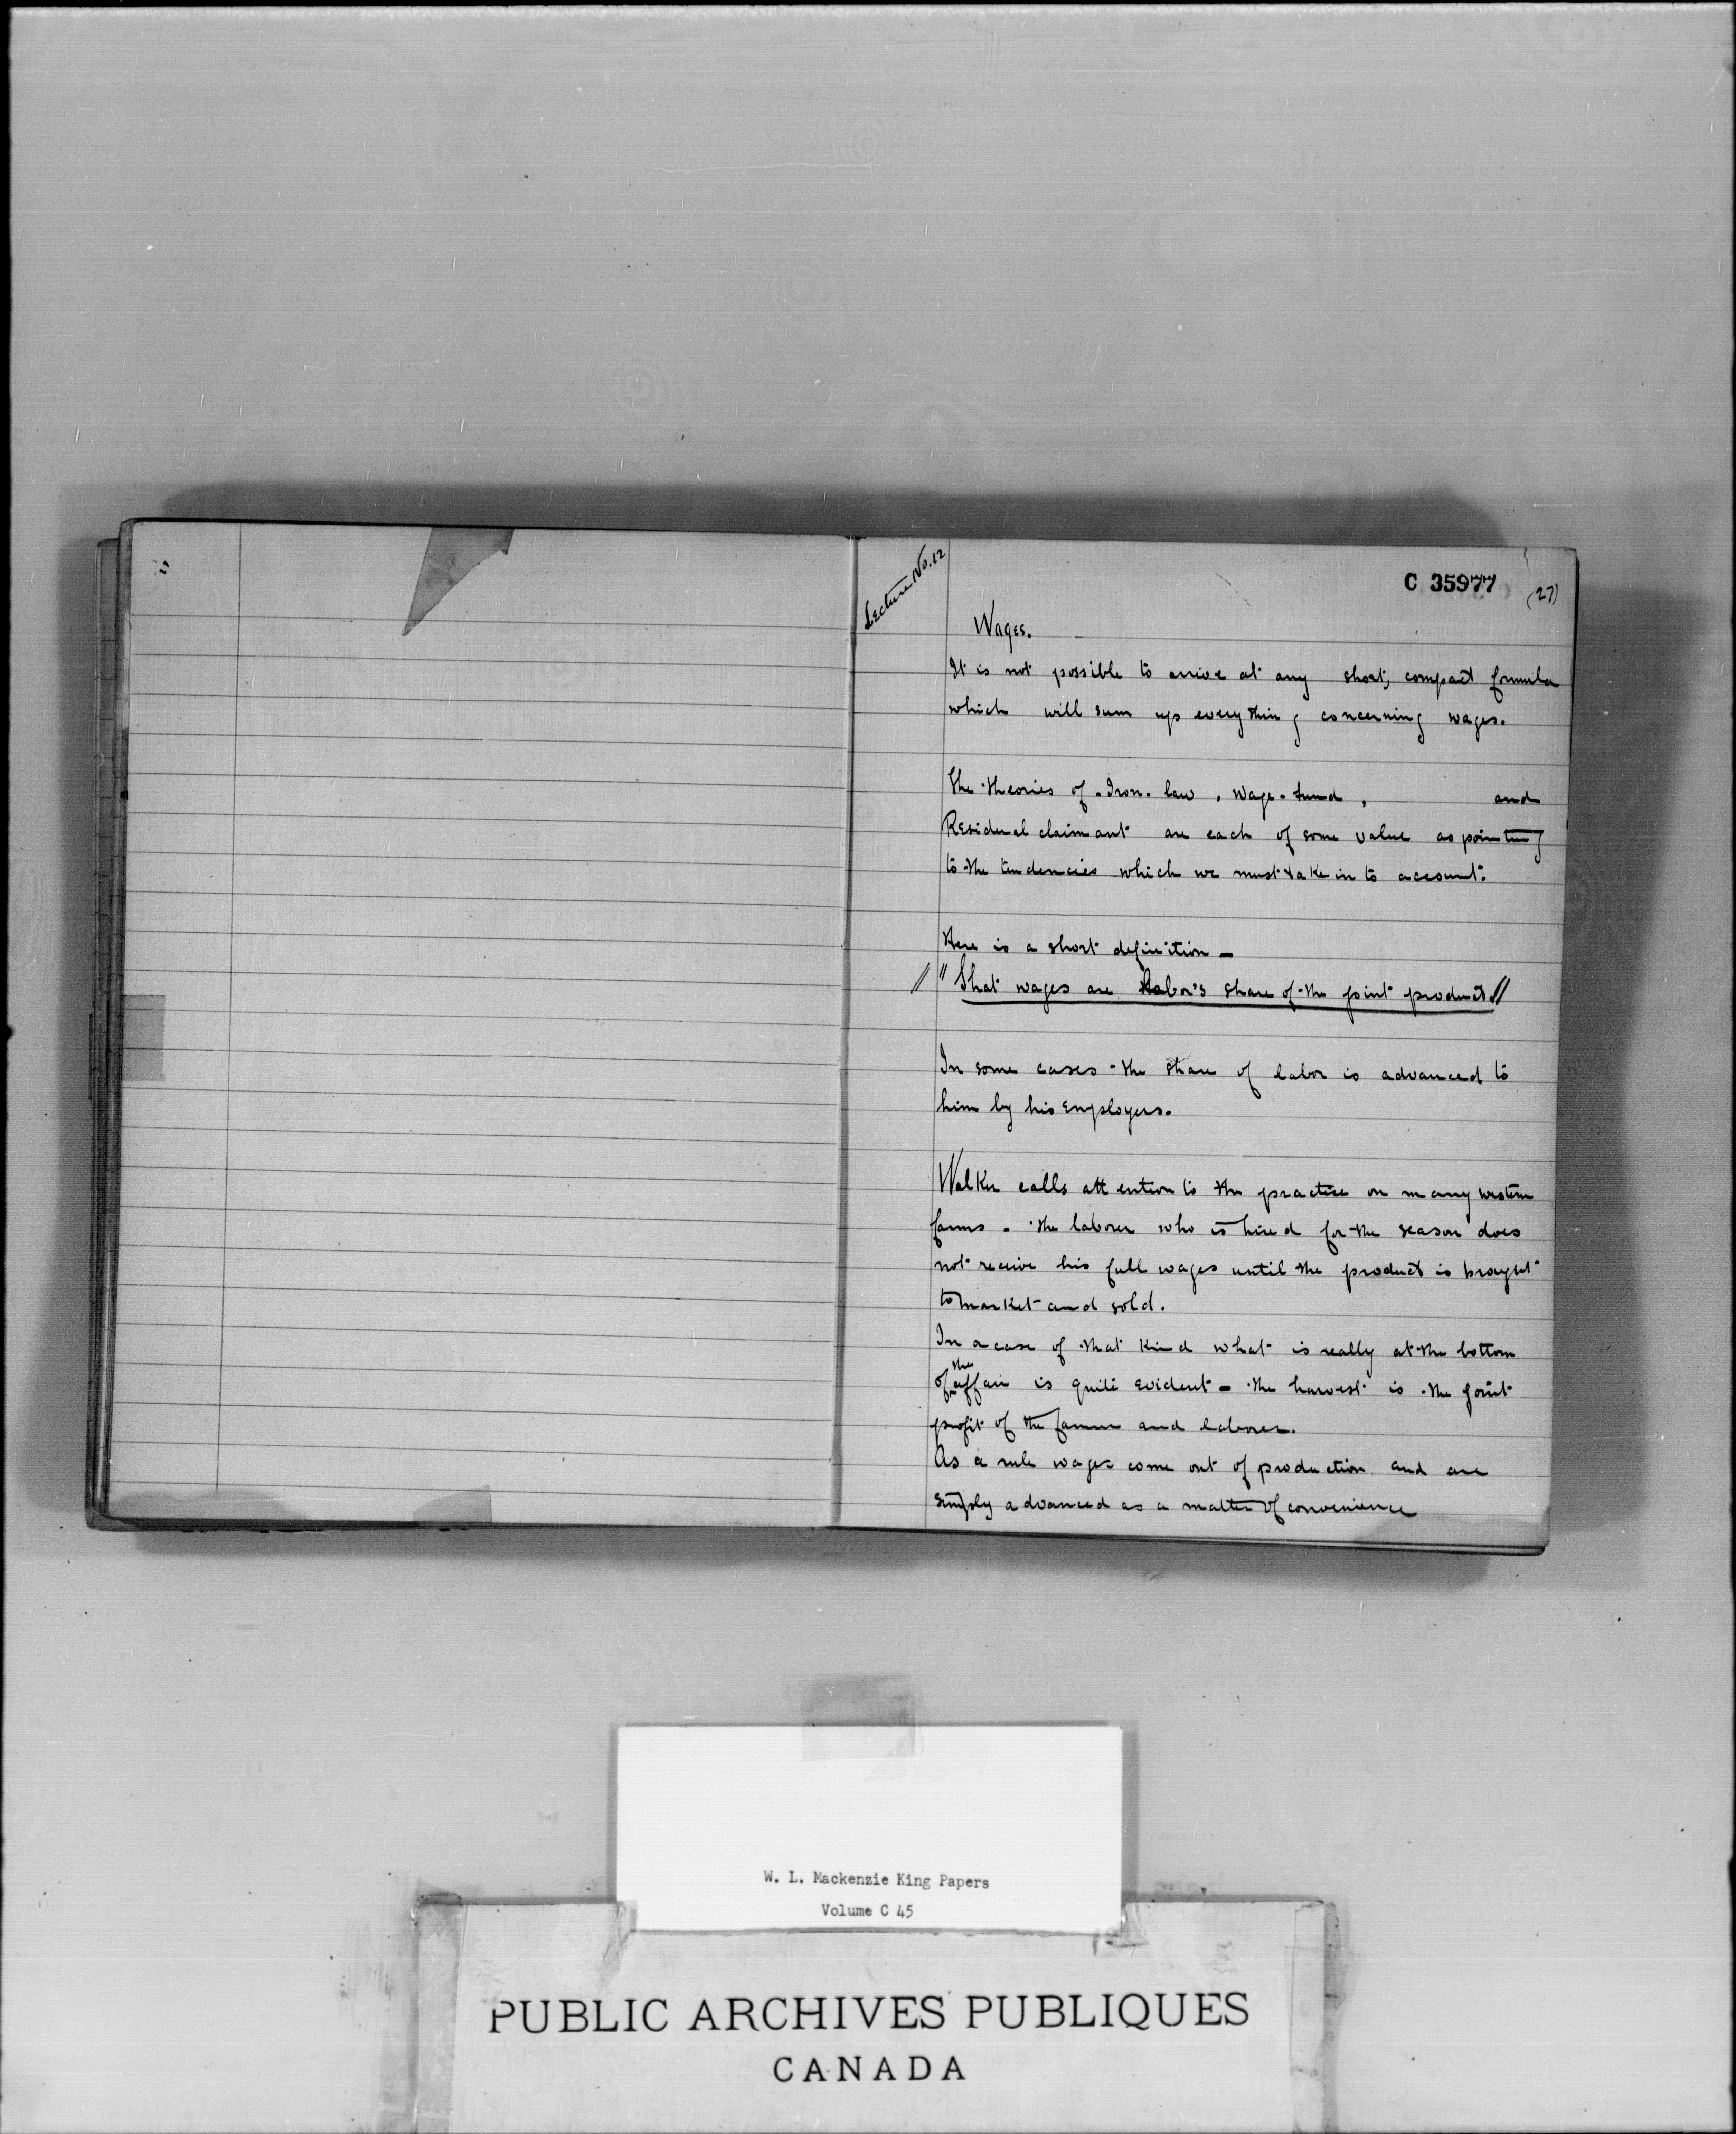 Lecture No. 12
C 35977
(27)
Wages.
It is not possible to arrive at any short, compact formula
which will sum up everything concerning wages.
The theories of Iron law, Wage-fund, and
Residual claimant are each of some value as pointing
to the tendencies which we must take in to account.
Here is a short definition -
// "That wages are Labor's share of the joint product."//
In some cases the share of labor is advanced to
him by his employers.
Walker calls attention to the practice on many western
farms. the laborer who is hired for the season does
not receive his full wages until the product is brought
to market and sold.
In a case of that kind what is really at the bottom
of the affair is quite evident - the harvest is the joint
profit of the farmer and laborer.
As a rule wages come out of production and are
simply advanced as a matter of convenience
W. L. Mackenzie King Papers
Volume C 45
PUBLIC ARCHIVES PUBLIQUES
CANADA